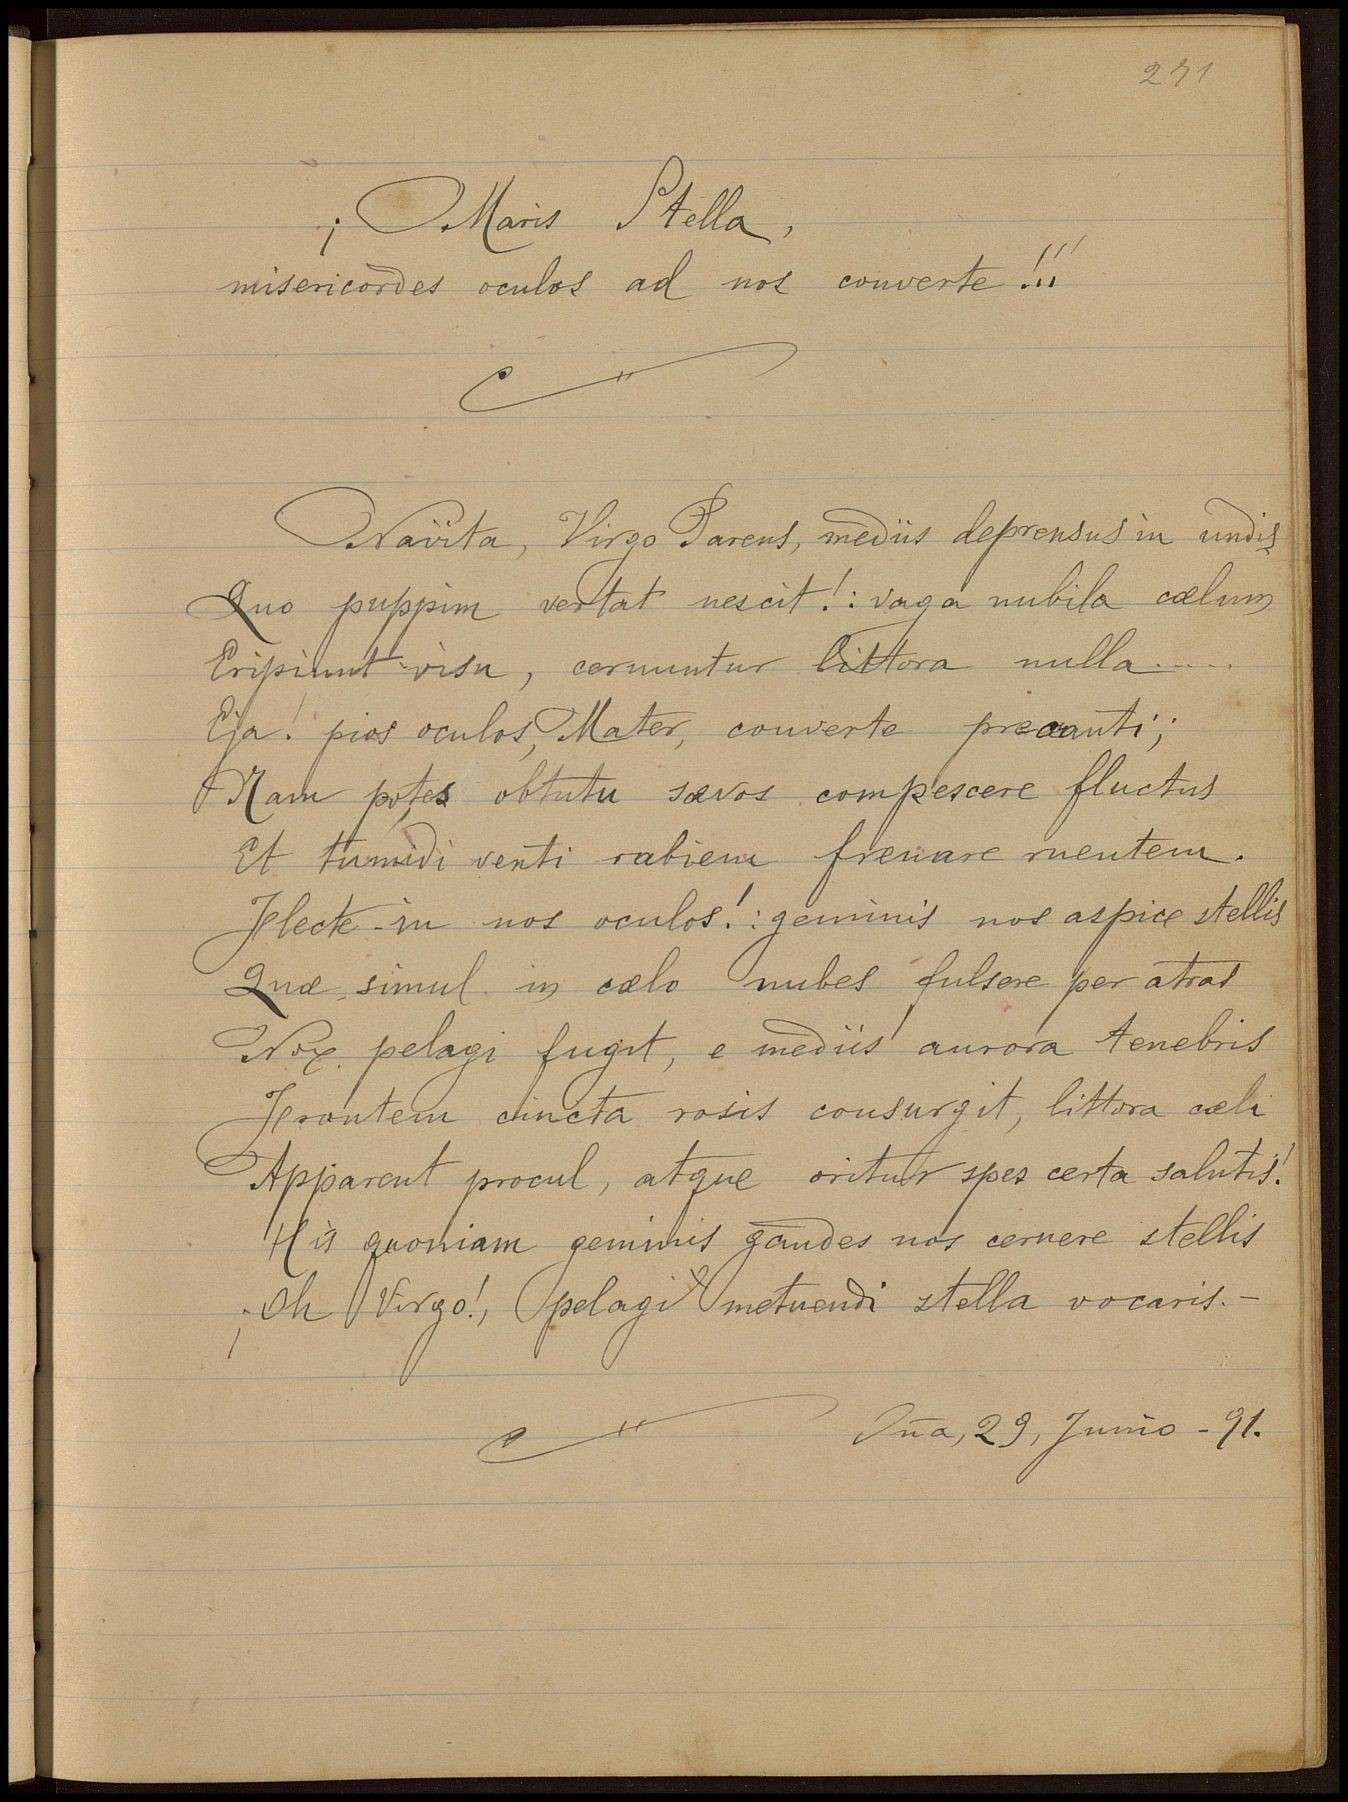 271
¡Maris Stella,
misericordes oculos ad nos converte!!!
Navita, Virgo Parens, mediis deprensus in undis
Quo puppim vertat nescit!: vaga nubila cælum
Eripiunt visu, cernuntur littora nulla.....
Eja! pios oculos, Mater, converte precanti;
Nam potes obtutu sævos compescere fluctus
Et tumidi venti rabiem frenare ruentem.
Flecte in nos oculos!: geminis nos aspice stellis
Quæ simul in cælo nubes fulsere per atras
Nox pelagi fugit, e mediis aurora tenebris
Frontem cincta rosis consurgit, littora cæli
Apparent procul, atque oritur spes certa salutis!
His quoniam geminis gaudes nos cernere stellis
¡Oh Virgo!, pelagi metuendi stella vocaris.-
Oña, 29, Junio - 91.